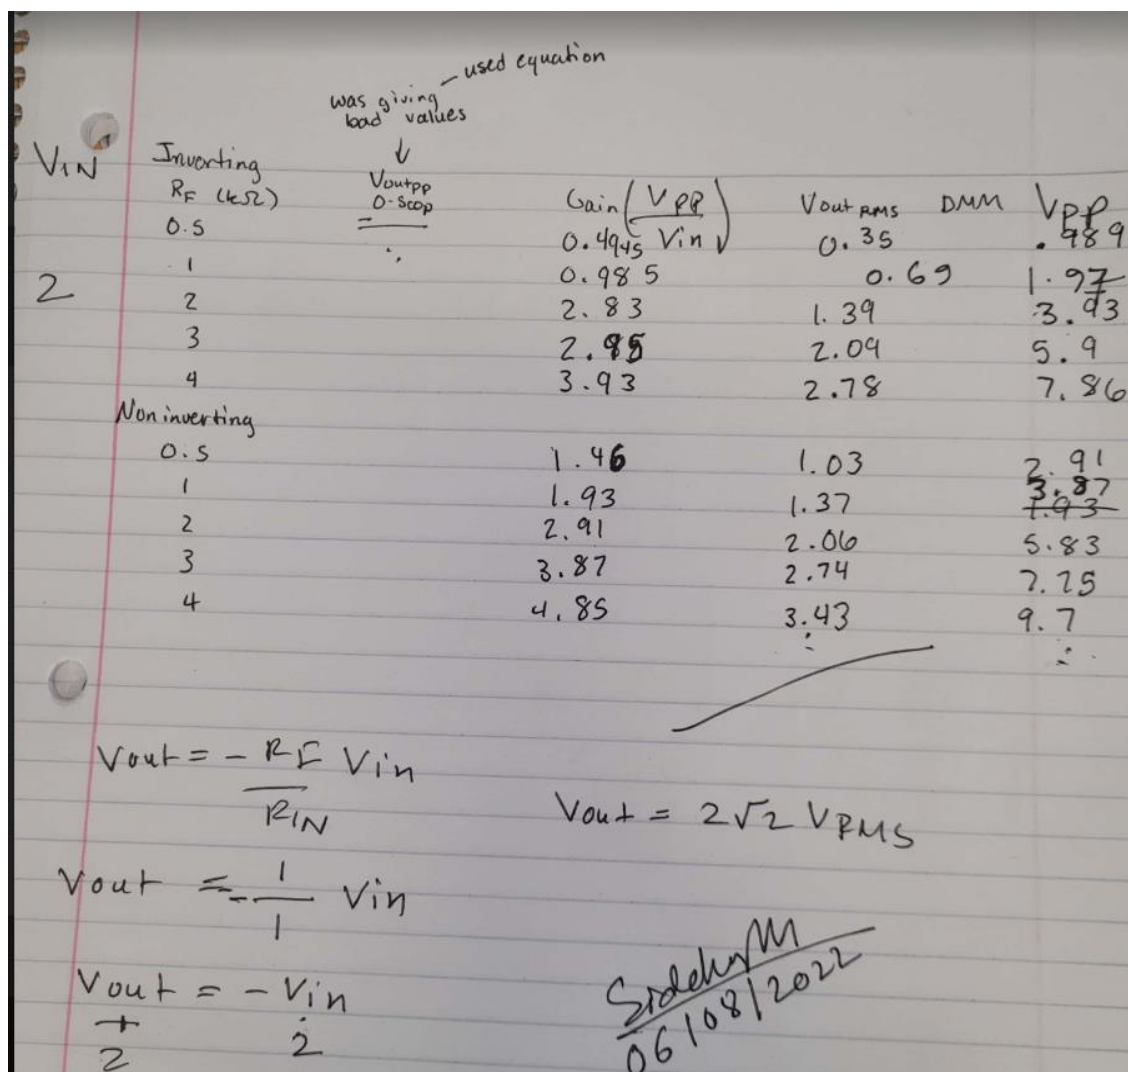 used equation
was giving
bad values
VIN Inverting
RF (kΩ) Voutpp O-Scop Gain (Vpp / Vin) Vout RMS DMM Vpp
0.5 0.4945 0.35 .989
1 0.985 0.69 1.97
2
2 2.83 1.39 3.93
3 2.95 2.09 5.9
4 3.93 2.78 7.86
Noninverting
0.5 1.46 1.03 2.91
1 1.93 1.37 3.87 1.93
2 2.91 2.06 5.83
3 3.87 2.74 7.75
4 4.85 3.43 9.7
Vout = - RF / RIN Vin
Vout = 2√2 VRMS
Vout = - 1 / 1 Vin
Vout = - Vin
2 2
06/08/2022